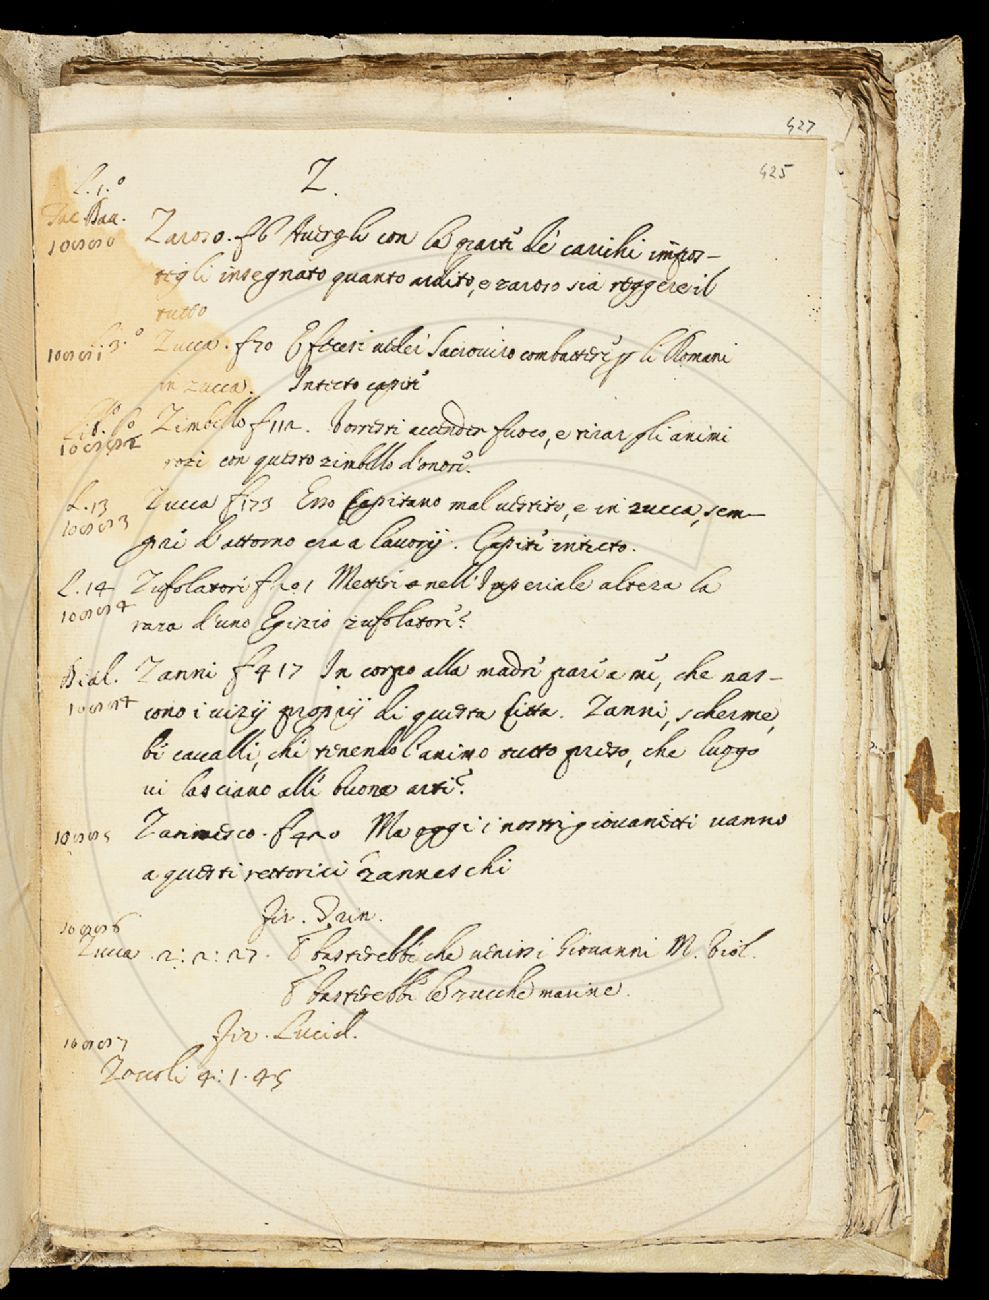 427
425
Z.
L. 1.º
Tac Dav.
Zaroso. f 6 Avergli con la prati de carichi impos-
tigli insegnato quanto ardito, e zaroso sia reggere il
tutto
L. 3.º
Zucca. f 70 Efecesi Sacroviro combatteri li Romani
in zucca. Intecto capite
Zimbello f 112. Vorresti accender fuoco, e tirar gli animi
rozi con questo zimbello d'onori.
L. 13 Zucca f 173 Ero Capitano mal vestito, e in zucca, sem-
pre d'attorno era a lavorij. Capite intecto.
L. 14 Zufolatori f 201 Metteri nell'Imperiale alteza la
raza d'uno Egizio zufolatore.
Dial. Zanni f 417 In corpo alla madre pare a me, che nas-
cono i vizij proprij di questa Citta. Zanni, scherme,
bi cavalli, che tenendo l'animo tutto preso, che luogo
vi lasciano alle buone arti?
Zannesco. f 420 Ma oggi i nostri giovanetti vanno
a questi rettorici zanneschi
Fir.
Zucca. 2: 2: 27. E basterebbe che venissi Giovanni M.
E basterebbe le zucche marine.
Fir. Lucid.
Zoccoli 4: 1. 45